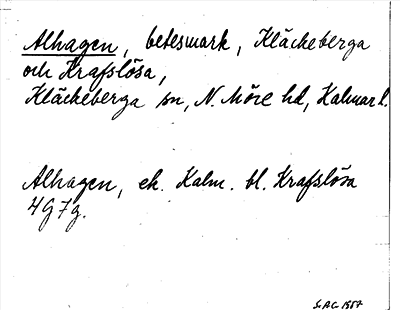 Alhagen, betesmark, Kläckeberga
och Krafslösa,
Kläckeberga sn, N. Möre hd, Kalmar l.
Alhagen, ek. Kalm. bl. Krafslösa
4G7g.
S.A.C. 1957